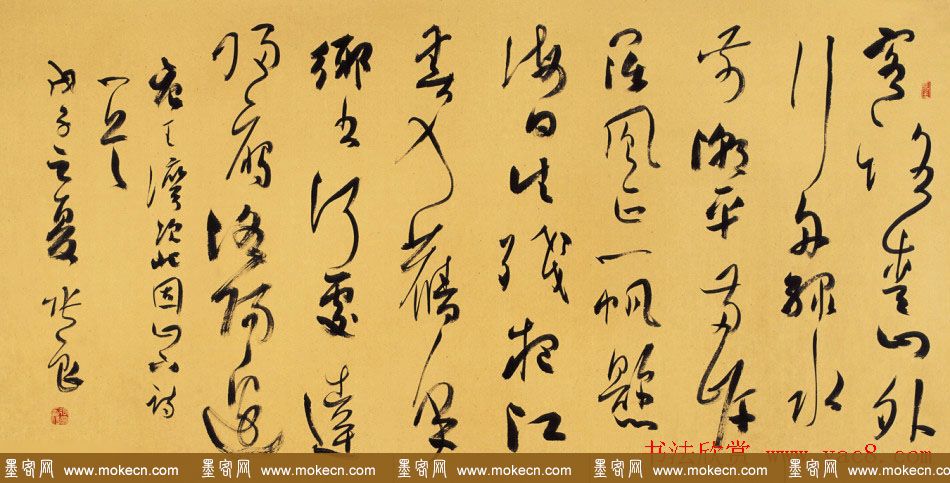 客路青山外
行舟綠水
前潮平兩岸
闊風正一帆懸
海日生殘夜江
春入舊年
鄉書何處達
歸雁洛陽邊
唐王灣次北固山下詩
一首
戊子之夏
书法欣赏 www.yac8.com
墨客网 www.mokecn.com 墨客网 www.mokecn.com 墨客网 www.mokecn.com 墨客网 www.mokecn.com 墨客网 www.mokecn.com